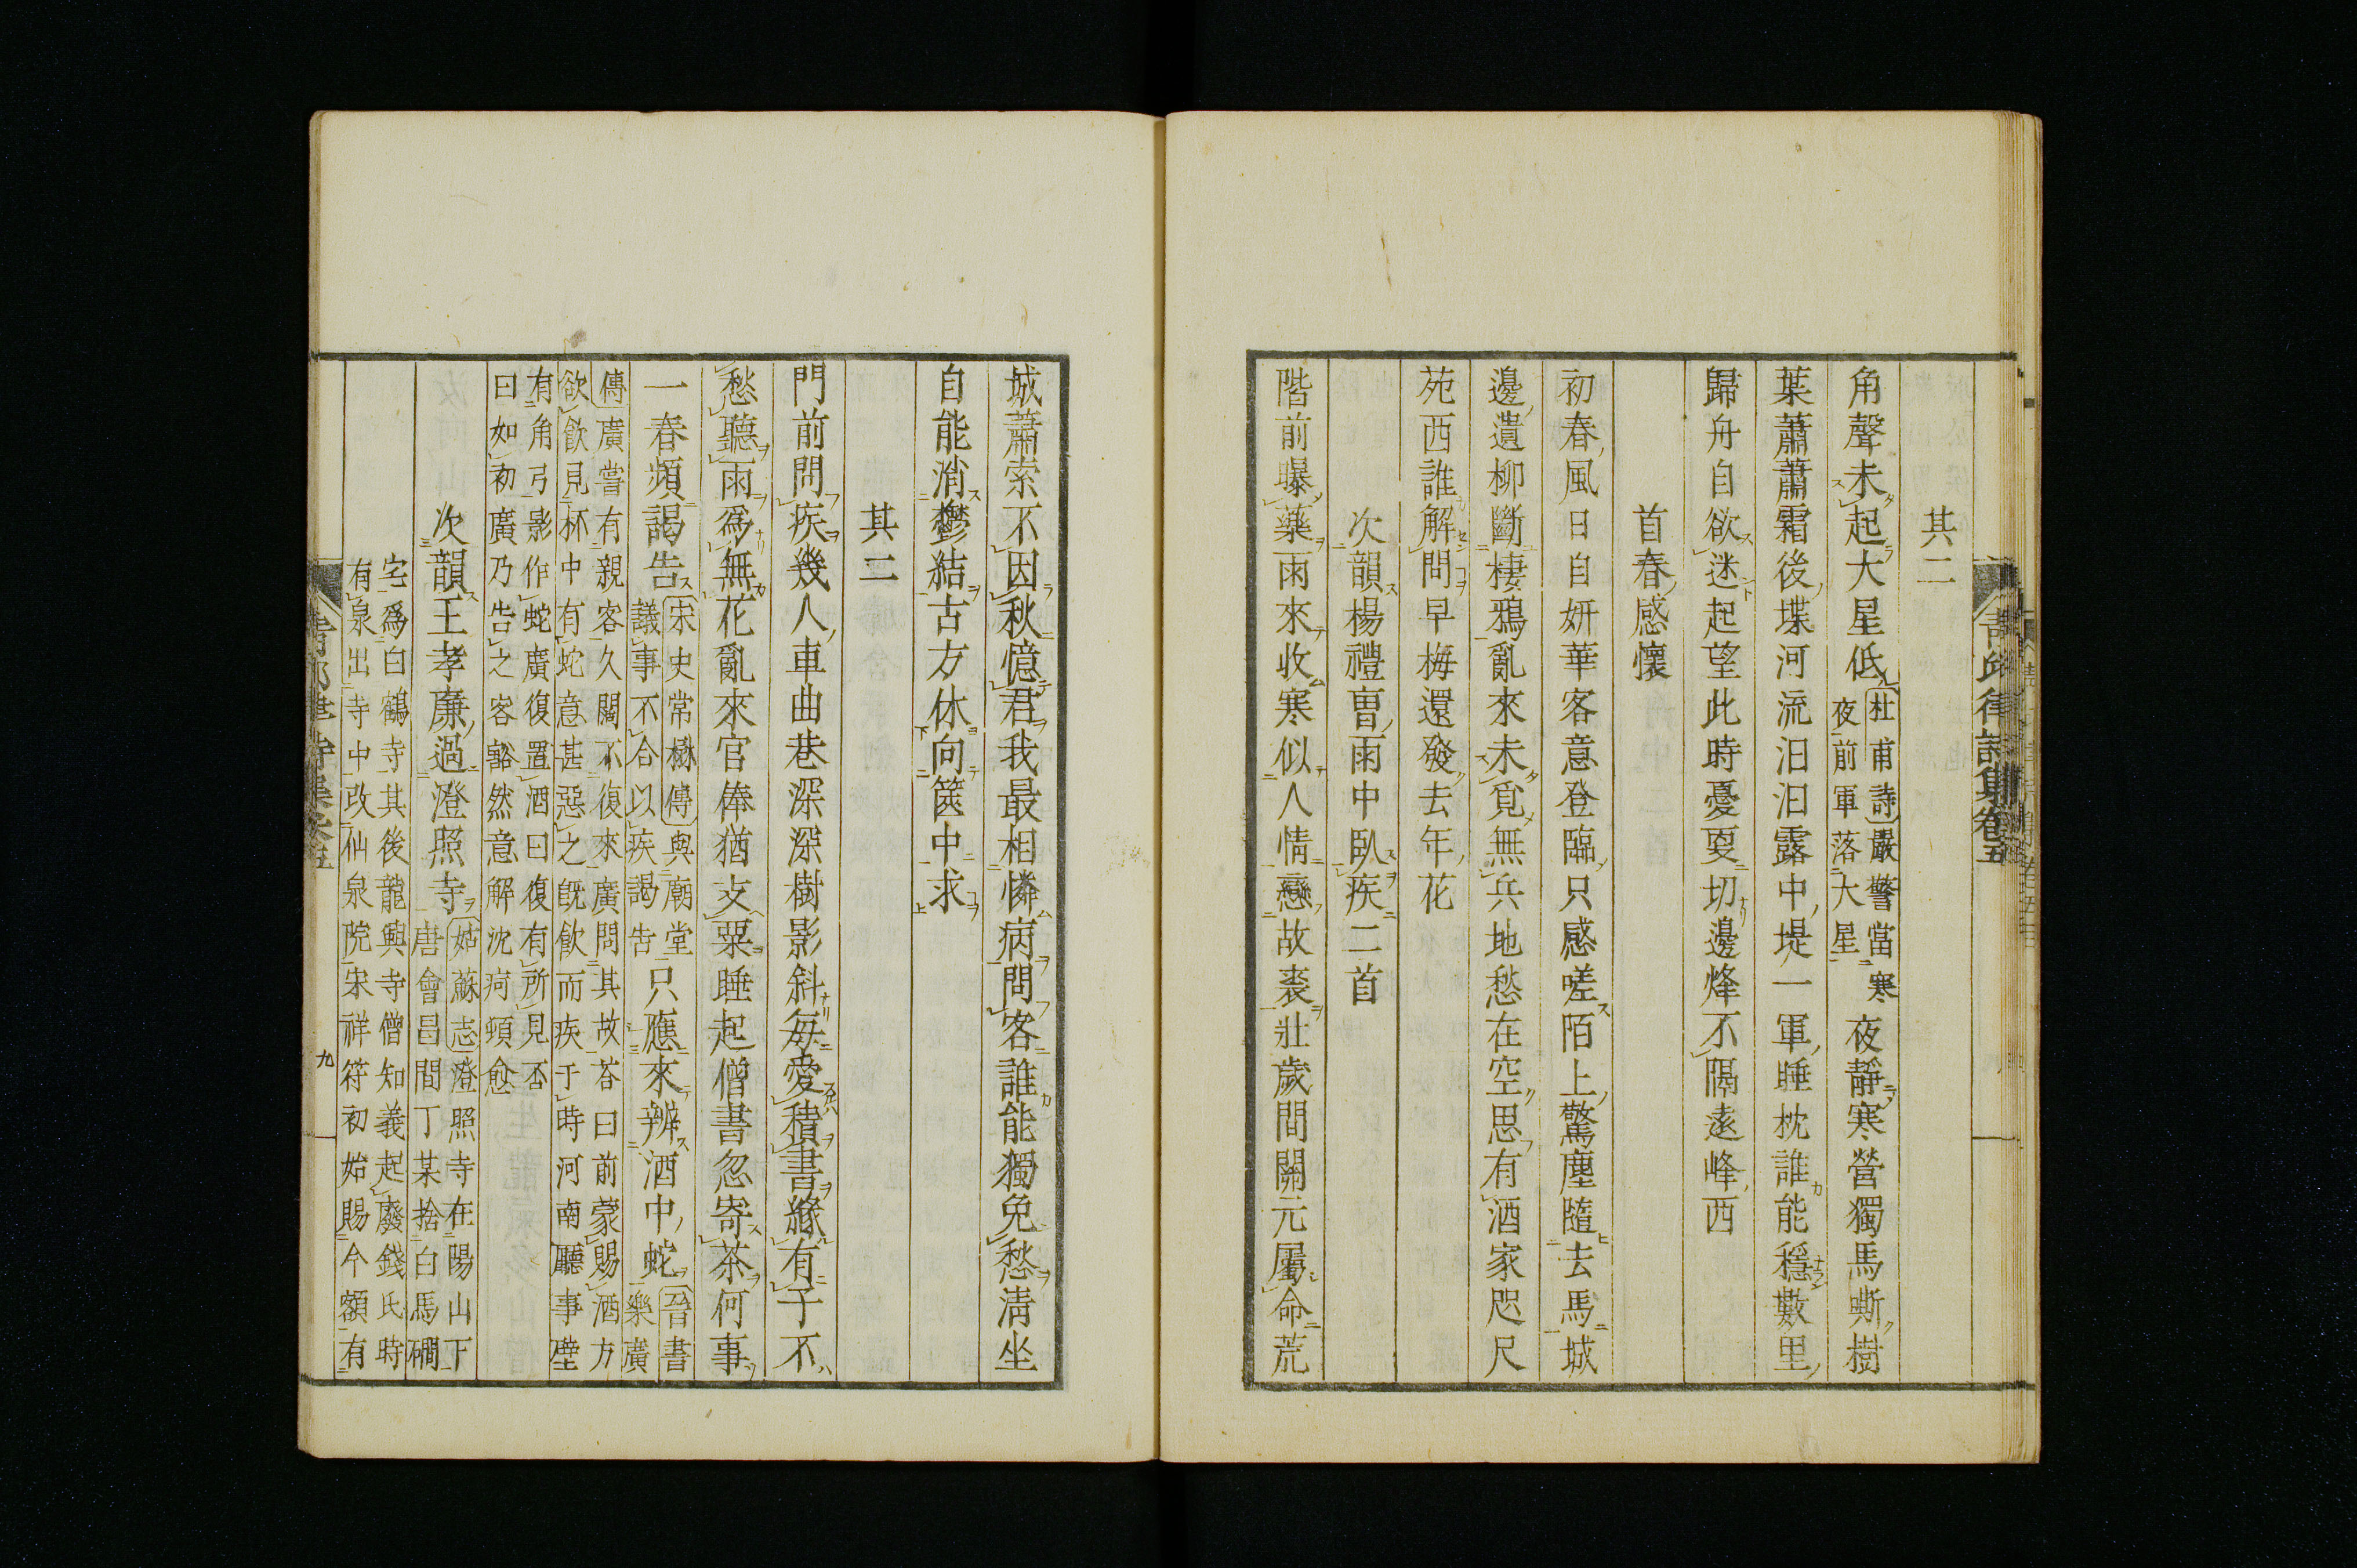 其二
角聲未起大星低
杜甫詩嚴警當寒
夜前軍落大星
夜靜寒營獨馬嘶樹
葉蕭蕭霜後堞河流汩汩露中堤一軍睡枕誰能穩數里
歸舟自欲迷起望此時憂更切邊烽不隔遠峰西
首春感懷
初春風日自妍華客意登臨只感嗟陌上驚塵隨去馬城
邊遺柳斷棲鴉亂來未覓無兵地愁在空思有酒家咫尺
苑西誰解問早梅還發去年花
次韻楊禮曹雨中臥疾二首
階前曝藥雨來收寒似人情戀故裘壯歲間關元屬命荒
城蕭索不因秋憶君我最相憐病問客誰能獨免愁淸坐
自能消鬱結古方休向篋中求
其二
門前問疾幾人車曲巷深深樹影斜每愛積書緣有子不
愁聽雨爲無花亂來官俸猶支粟睡起僧書忽寄茶何事
一春頻謁告
宋史常楙傳與廟堂
議事不合以疾謁告
只應來辨酒中蛇
晉書
樂廣
傳廣嘗有親客久闊不復來廣問其故荅曰前蒙賜酒方
欲飮見杯中有蛇意甚惡之旣飮而疾于時河南廳事壁
有角弓影作蛇廣復置酒曰復有所見否
曰如初廣乃告之客豁然意解沈疴頓愈
次韻王孝廉過澄照寺
姑蘇志澄照寺在陽山下
唐會昌間丁某捨白馬磵
宅爲白鶴寺其後龍興寺僧知義起廢錢氏時
有泉出寺中改仙泉院宋祥符初始賜今額有
九